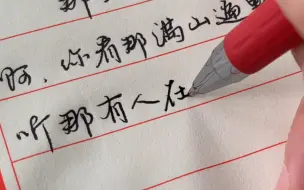 那
啊，你看那满山遍
听那有人在